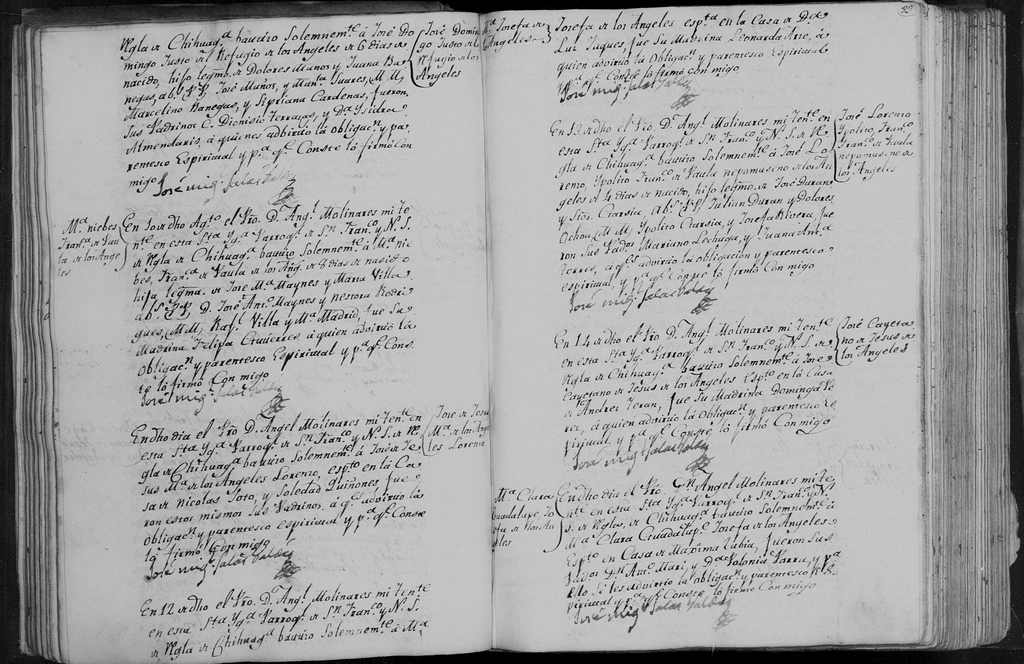 Rgla de Chihuagª bautizo Solemnemte á José Do
mingo Justo del Refugio de los Angeles de 6 dias de
nacido, hijo legmo de Dolores Muñoz y Juana Ba
negas, ab. PP. José Muñoz, y Manla Juares, M M,
Marcelino Banegas, y Sipriana Cardenas, fueron
sus Padrinos C. Dionisio Terrazas, y Dª Isidroa
Almendaris á quienes advirtio la obligacn y pa
rentesco Espiritual y pª qe Conste lo firmó Con
migo
José Mig. Salas Valdez
José Domin
go Justo del
Refugio de los
Angeles
Mª niebes
Franca de Pau
la de los Ange
les
En 10 de dho Agto el Pro. Dn Angl Molinares mi te
nte en esta Sta Ygª Parroql de Sn Franco y N. S.
de Rgla de Chihuagª bautizo Solemnemte á Mª nie
bes, Franca de Paula de los Angs de 3 dias de nasido
hija legma de Jose Mª Maynes y Maria Villa
abs PP, D. José Anto Maynes y Nestora Rodri
gues, M M, Rafl Villa y Mª Madrid, fue Su
Madrina Felipa Gutierres á quien advirtio la
Obligacn y parentesco Espiritual y pª qe Cons
te lo firmó Conmigo
José Mig. Salas Valdez
En dho dia el Pro D. Angel Molinares mi Tente en
esta Sta Ygª Parroql de Sn Franco y N. S. de R
gla de Chihuagª bautizo Solemnemte á José de Je
sus Mª de los Angeles Lorenzo, espto en la Ca
sa de Nicolas Soto, y Soledad Quiñones, fue
ron estos mismos sus Padrinos, á qs advirtio la
obligacn y parentesco espiritual y pª qe Conste
lo firmó Conmigo
José Mig. Salas Valdez
José de Jesus
Mª de los Ange
les Lorenzo
En 12 de dho el Pro. D. Angl Molinares mi Tente
en esta Sta Ygª Parroql de Sn Franco y N. S.
de Rgla de Chihuagª bautizo Solemnemte á Mª
Mª Josefa de
los Angeles
Josefa de los Angeles espta en la Casa de Dª
Luz Juques, fue Su Madrina Leonarda Arce, á
quien advirtio la Obligacn y parentesco Espiritual
y pª qe Conste lo firmó conmigo
José Mig. Salas Valdez
En 13 de dho el Pro. D. Angl Molinares mi Tente en
esta Sta Ygª Parroql de Sn Franco y N. S. de R
gla de Chihuagª bautizo Solemnemte á José Lo
renzo, Ypolito Franco de Paula nepomuseno de los An
geles de 4 dias de nacido, hijo legmo de José Duran
y Sios Garsia, Abs PP Julian Duran y Dolores
Ochoa, M M Ypolito Garsia, y Josefa Rivera, fue
ron sus Pads Mariano Lechuga, y Juana Anta
Torres, á qs advirtio la obligacion y parentesco
espiritual, y pª qe Conste lo firmó Conmigo
José Mig. Salas Valdez
José Lorenzo
Ypolito, Franco
Franco de Paula
nepomuseno de
los Angeles
En 14 de dho el Pro D. Angl Molinares mi Tente
en esta Sta Ygª Parroql de Sn Franco y N. S. de
Regla de Chihuagª bautizo Solemnemte á José
Cayetano de Jesus de los Angeles Espto en la Casa
de Andres Teran, fue Su Madrina Dominga Pe
rez, á quien advirtio la Obligacn y parentesco Es
piritual, y pª qe Conste lo firmó Conmigo
José Mig. Salas Valdez
José Cayeta
no de Jesus de
los Angeles
Mª Clara
Guadalupe Jo
sefa de los An
geles
En dho dia el Pro. Cn Angel Molinares mi te
nte en esta Sta Ygª Parroql de Sn Franco y N.
S. de Rgla de Chihuagª bautizo Solemnemte á
Mª Clara Guadalupe Josefa de los Angeles
Espta en Casa de Maxima Rubia, fueron sus
Padrs Dn Anto Mari, y Dª Polonia Parra, y pª
ello les advirtio la obligacn y parentesco Es
piritual y pª qe Conste lo firmó Conmigo
José Mig. Salas Valdez